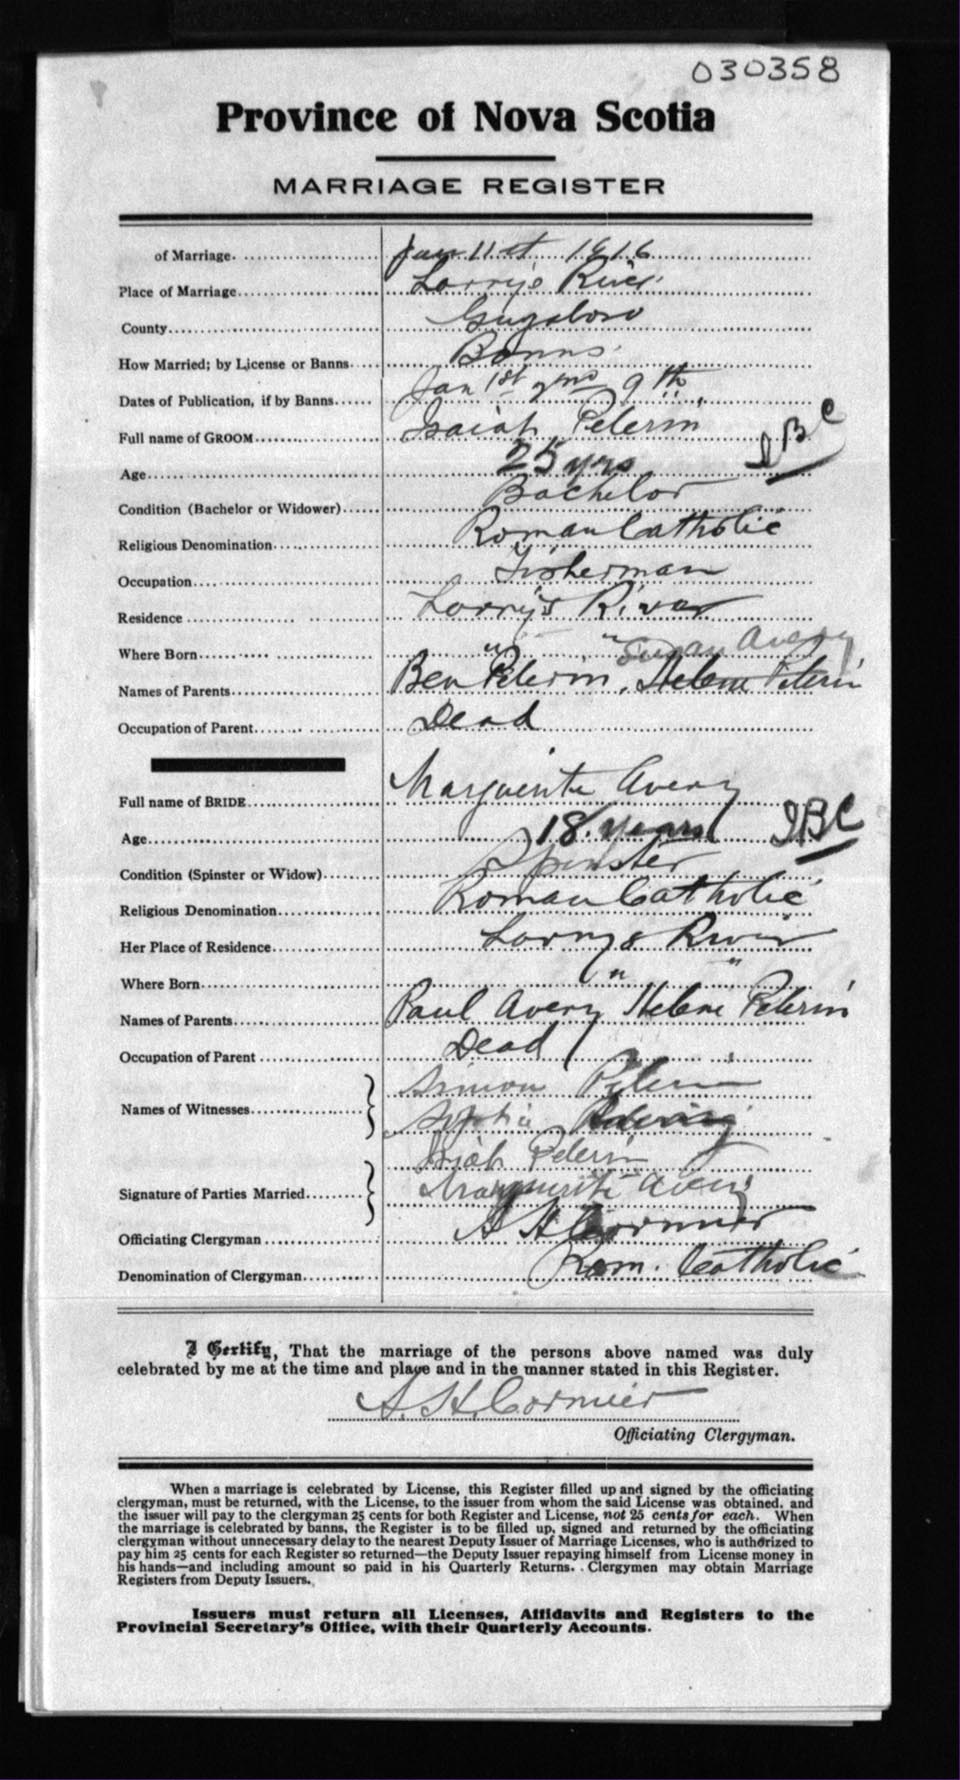 030358
Province of Nova Scotia
MARRIAGE REGISTER
of Marriage. Jan 11th 1916
Place of Marriage Larry's River
County Guysboro
How Married; by License or Banns Banns
Dates of Publication, if by Banns Jan 1st 2nd 9th
Full name of GROOM Isaiah Pelerin
IBC
Age 25 yrs
Condition (Bachelor or Widower) Bachelor
Religious Denomination Roman Catholic
Occupation Fisherman
Residence Larry's River
Where Born " "
Susan Avery
Names of Parents Ben Pelerin, Helene Pelerin
Occupation of Parent Dead
Full name of BRIDE Marguerite Avery
Age 18 years
IBC
Condition (Spinster or Widow) Spinster
Religious Denomination Roman Catholic
Her Place of Residence Larrys River
Where Born " "
Names of Parents Paul Avery Helene Pelerin
Occupation of Parent Dead
Names of Witnesses Simon Pelerin
Sophie
Signature of Parties Married Pelerin
Marguerite Avery
Officiating Clergyman A H Cormier
Denomination of Clergyman Rom. Catholic
I Certify, That the marriage of the persons above named was duly
celebrated by me at the time and place and in the manner stated in this Register.
A. H. Cormier
Officiating Clergyman.
When a marriage is celebrated by License, this Register filled up and signed by the officiating
clergyman, must be returned, with the License, to the issuer from whom the said License was obtained, and
the issuer will pay to the clergyman 25 cents for both Register and License, not 25 cents for each. When
the marriage is celebrated by banns, the Register is to be filled up, signed and returned by the officiating
clergyman without unnecessary delay to the nearest Deputy Issuer of Marriage Licenses, who is authorized to
pay him 25 cents for each Register so returned—the Deputy Issuer repaying himself from License money in
his hands—and including amount so paid in his Quarterly Returns. Clergymen may obtain Marriage
Registers from Deputy Issuers.
Issuers must return all Licenses, Affidavits and Registers to the
Provincial Secretary's Office, with their Quarterly Accounts.